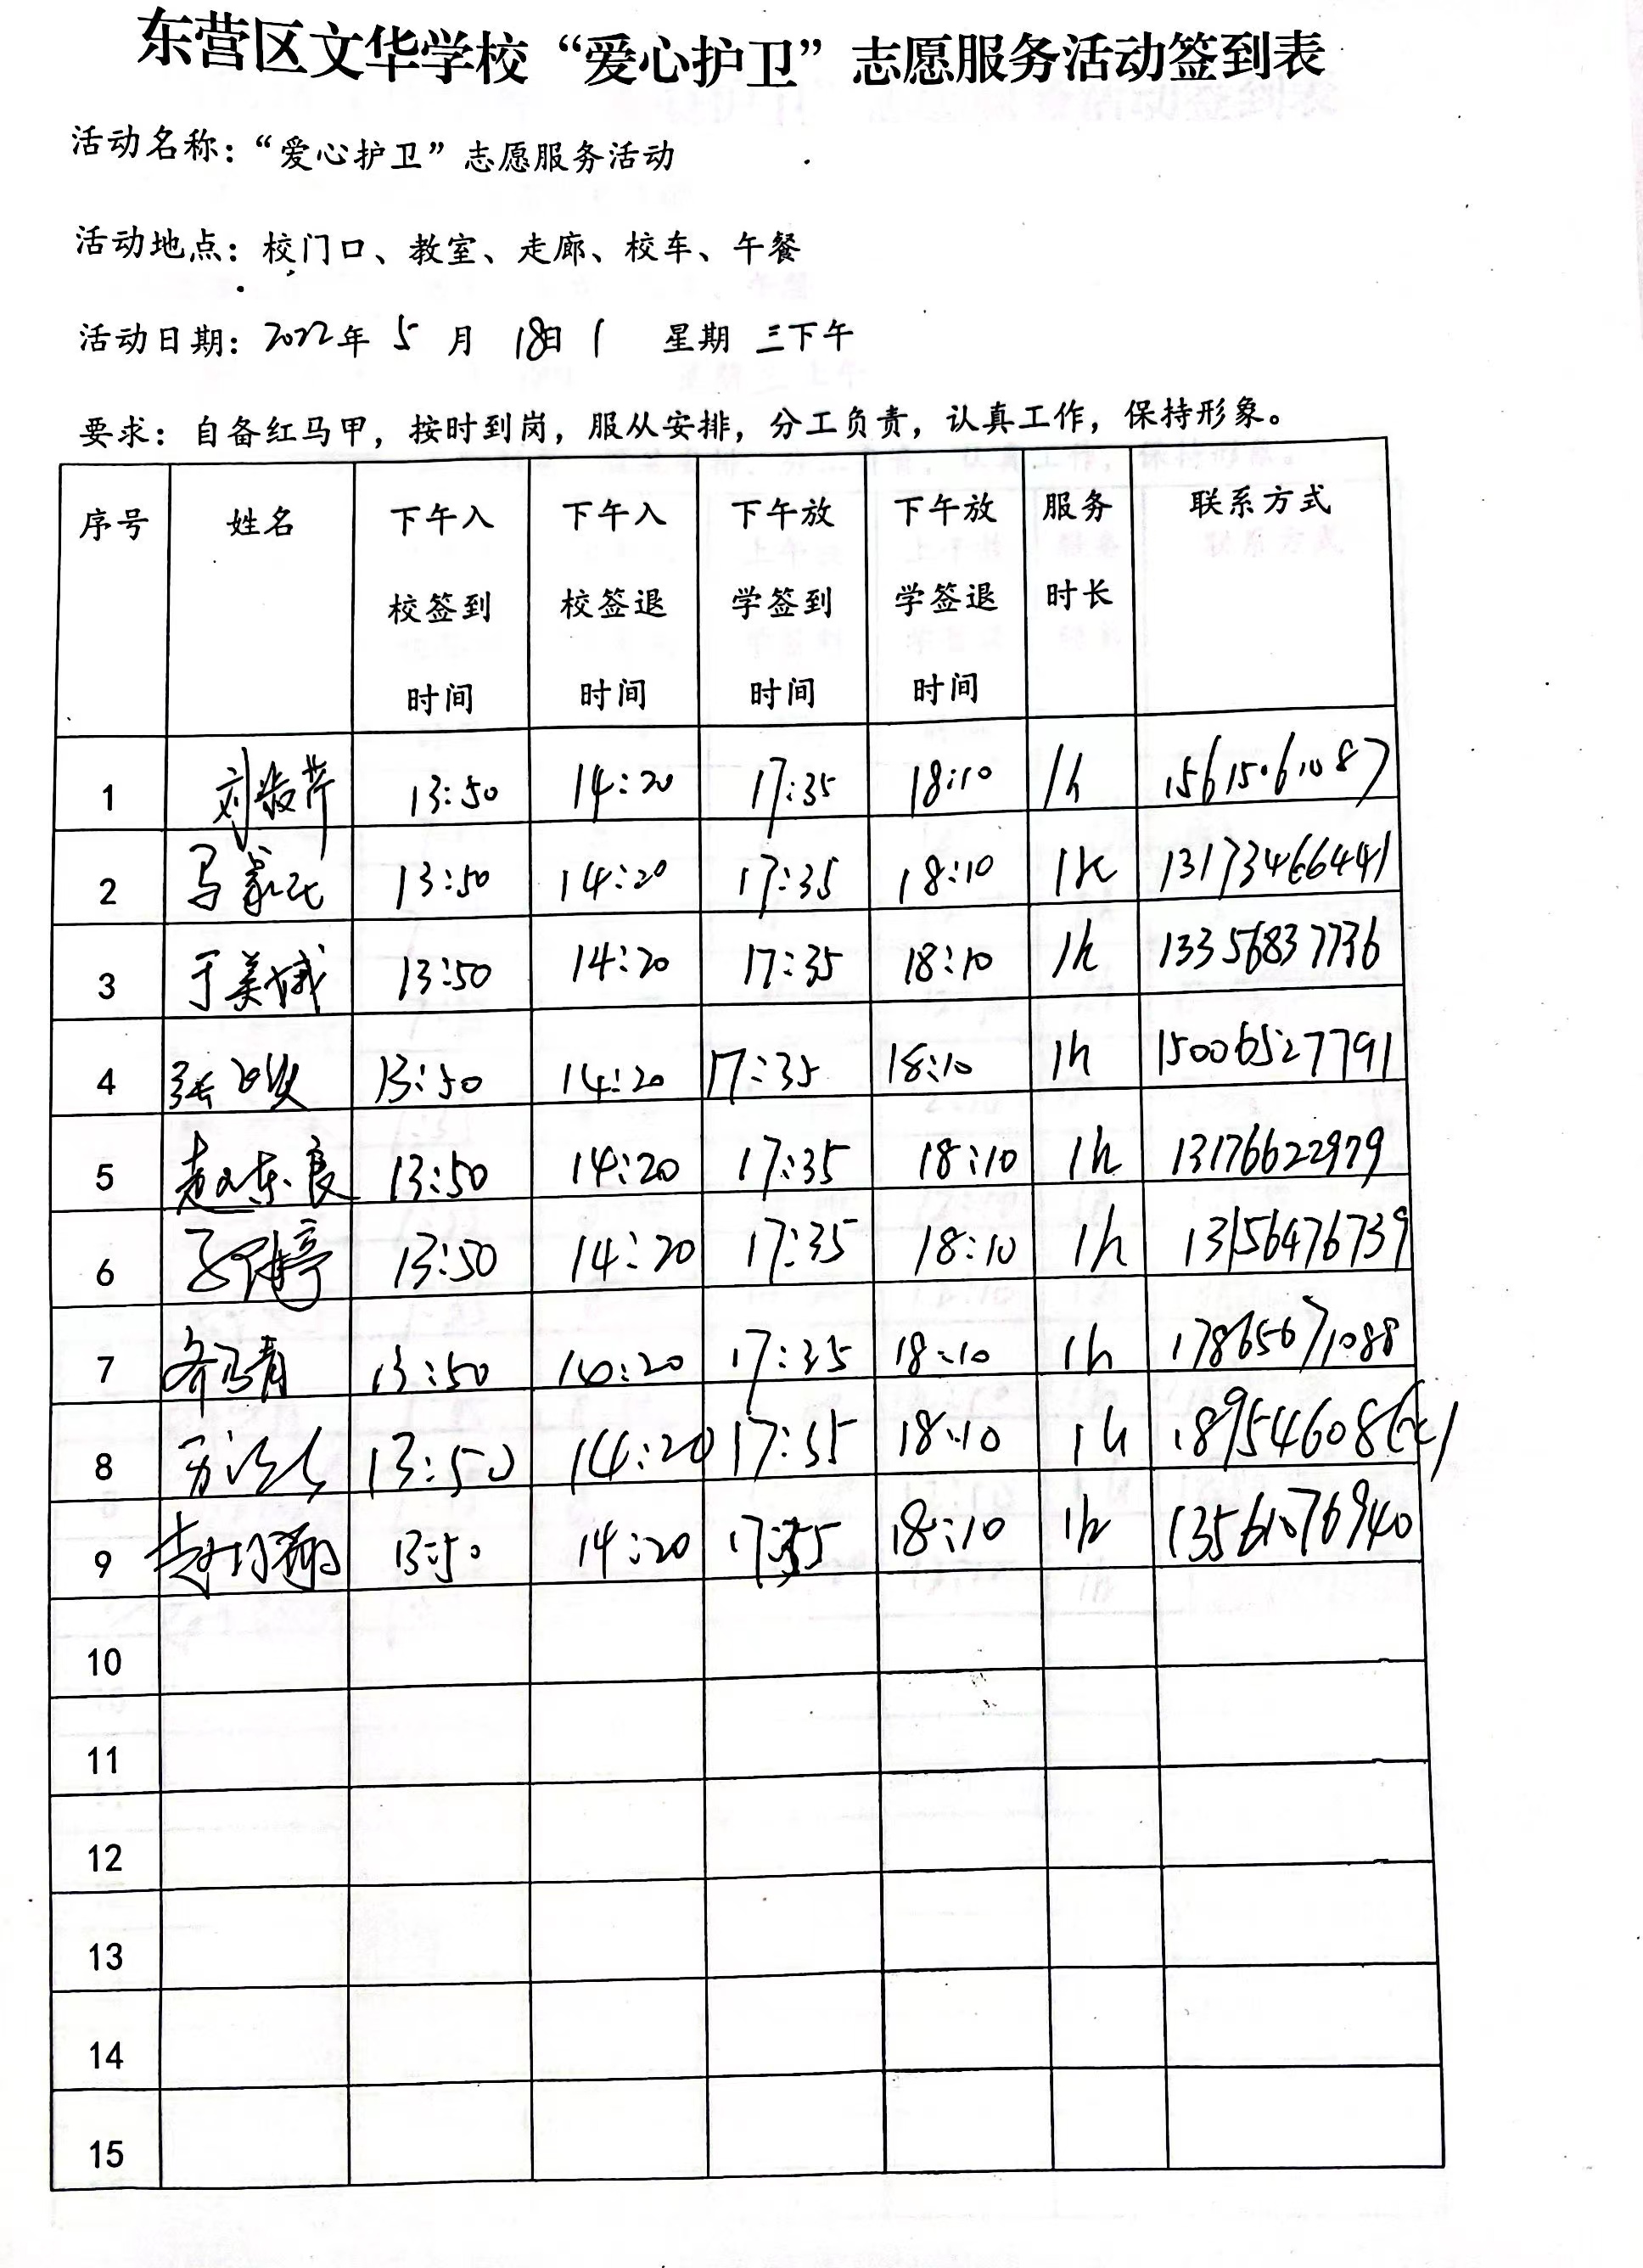 东营区文华学校“爱心护卫”志愿服务活动签到表
活动名称：“爱心护卫”志愿服务活动
活动地点：校门口、教室、走廊、校车、午餐
活动日期：2022年 5 月 18日 星期 三下午
要求：自备红马甲，按时到岗，服从安排，分工负责，认真工作，保持形象。
序号 姓名 下午入校签到时间 下午入校签退时间 下午放学签到时间 下午放学签退时间 服务时长 联系方式
1 13:50 14:20 17:35 18:10 1h 15615061087
2 13:50 14:20 17:35 18:10 1h 13173466441
3 于美 13:50 14:20 17:35 18:10 1h 13356837736
4 张 13:50 14:20 17:35 18:10 1h 15006527791
5 赵东良 13:50 14:20 17:35 18:10 1h 13176622979
6 13:50 14:20 17:35 18:10 1h 13156476739
7 13:50 14:20 17:35 18:10 1h 17865671088
8 13:50 14:20 17:35 18:10 1h
9 13:50 14:20 17:35 18:10 1h 13561076940
10
11
12
13
14
15